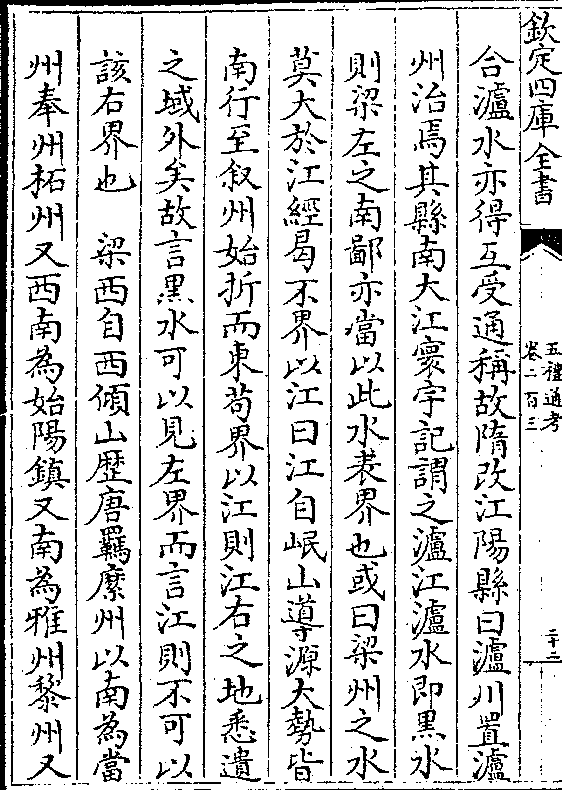 欽定四庫全書
五禮通考
卷二百三
二十二
合瀘水亦得互受通稱故隋改江陽縣曰瀘川置瀘
州治焉其縣南大江寰宇記謂之瀘江瀘水即黑水
則梁左之南鄙亦當以此水表界也或曰梁州之水
莫大於江經曷不界以江曰江自岷山導源大勢皆
南行至叙州始折而東苟界以江則江右之地悉遺
之域外矣故言黑水可以見左界而言江則不可以
該右界也　梁西自西傾山歴唐羈縻州以南為當
州奉州拓州又西南為始陽鎮又南為雅州黎州又